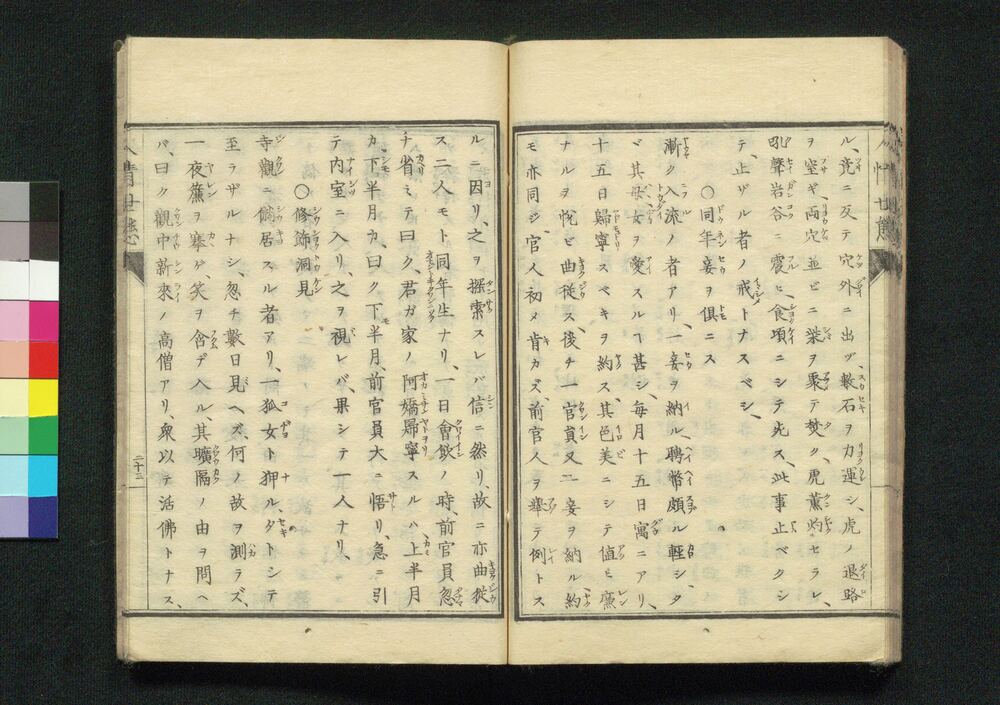 ル、竞ニ反テ穴外ニ出ヅ、數石ヲ力運シ、虎ノ退路
ヲ窒ギ、両穴並ビニ柴ヲ聚テ焚ク、虎薫灼セラレ、
吼聲岩谷ニ震ヒ、食頃ニシテ死ス、此事止ベクシ
テ止ザル者ノ戒トナスベシ、
〇同年妾ヲ俱ニス
漸ク入流ノ者アリ、一妾ヲ納ル、聘幣頗ル軽シ、タ
ヾ其母、女ヲ愛スルヿ甚シ、毎月十五日寓ニアリ、
十五日歸寧スベキヲ約ス、其色美ニシテ値ヒ廉
ナルヲ悅ビ曲從ス、後チ一官員又一妾ヲ納ル、約
モ亦同ジ、官人初メ肯カズ、前官人ヲ舉テ例トス
ルニ因リ、之ヲ探索スレバ信ニ然リ、故ニ亦曲從
ス、二人モト同年生ナリ、一日會飮ノ時、前官員忽
チ省ミテ曰ク、君ガ家ノ阿嬌歸寧スルハ上半月
カ下半月カ、曰ク下半月、前官員大ニ悟リ、急ニ引
テ内室ニ入リ、之ヲ視レバ、果シテ一人ナリ、
〇修飾洞見
寺觀ニ僦居スル者アリ、一狐女ト狎ル、夕トシテ
至ラザルナシ、忽チ數日見ヘズ、何ノ故ヲ測ラズ、
一夜簾ヲ搴ゲ、笑ヲ含デ入ル、其曠隔ノ由ヲ問ヘ
バ、曰ク觀中新來ノ高僧アリ、衆以テ活佛トナス、
人情世態
人情世態
二十三